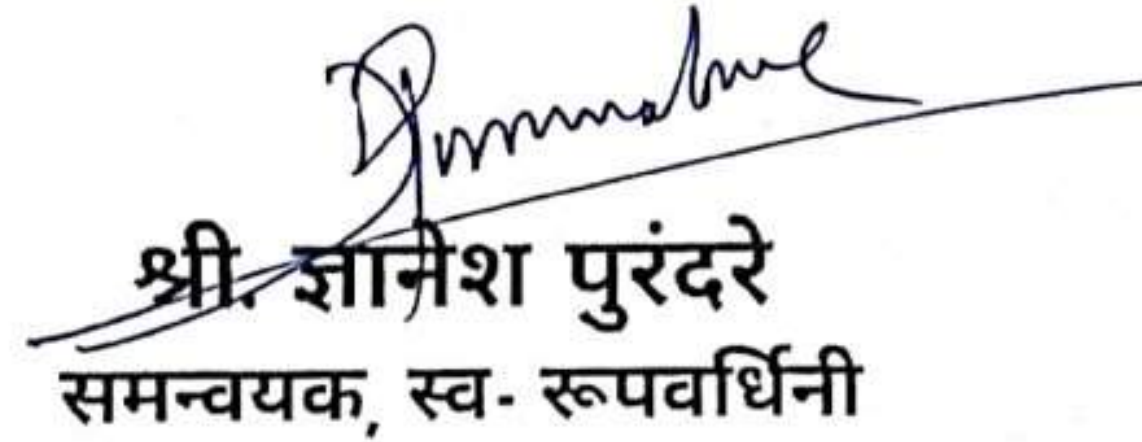 श्री. ज्ञानेश पुरंदरे
समन्वयक, स्व- रूपवर्धिनी